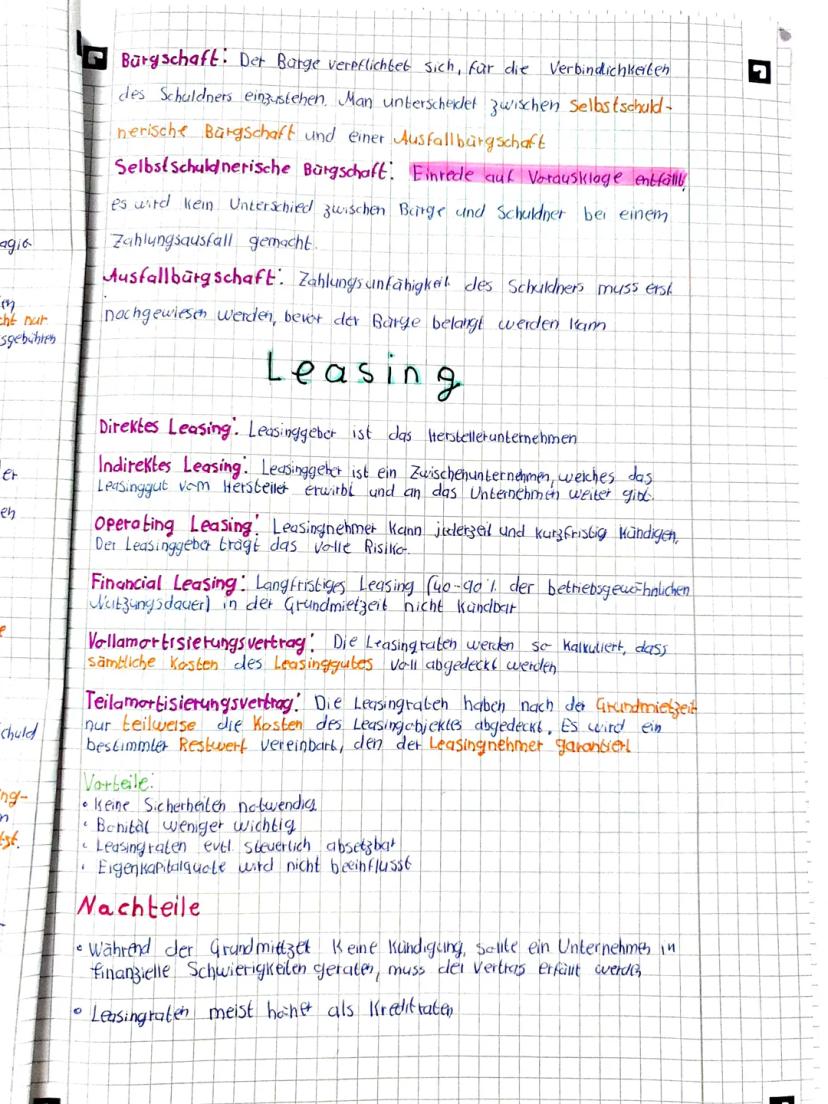 Bürgschaft: Der Bürge verpflichtet sich, für die Verbindlichkeiten
des Schuldners einzustehen. Man unterscheidet zwischen Selbstschuld-
nerische Bürgschaft und einer Ausfallbürgschaft
Selbstschuldnerische Bürgschaft: Einrede auf Vorausklage entfällt,
es wird kein Unterschied zwischen Bürge und Schuldner bei einem
Zahlungsausfall gemacht.
Ausfallbürgschaft: Zahlungsunfähigkeit des Schuldners muss erst
nachgewiesen werden, bevor der Bürge belangt werden kann
Leasing
Direktes Leasing: Leasinggeber ist das Herstellerunternehmen
Indirektes Leasing: Leasinggeber ist ein Zwischenunternehmen, welches das
Leasinggut vom Hersteller erwirbt und an das Unternehmen weiter gibt.
Operating Leasing: Leasingnehmer kann jederzeit und kurzfristig kündigen,
Der Leasinggeber trägt das volle Risiko.
Financial Leasing: Langfristiges Leasing (40-90% der betriebsgewöhnlichen
Nutzungsdauer) in der Grundmietzeit nicht kündbar
Vollamortisierungsvertrag: Die Leasingraten werden so kalkuliert, dass
sämtliche Kosten des Leasinggutes voll abgedeckt werden
Teilamortisierungsvertrag: Die Leasingraten haben nach der Grundmietzeit
nur teilweise die Kosten des Leasingobjektes abgedeckt. Es wird ein
bestimmter Restwert vereinbart, den der Leasingnehmer garantiert
Vorteile:
• Keine Sicherheiten notwendig
• Bonität weniger wichtig
• Leasingraten evtl. steuerlich absetzbar
• Eigenkapitalquote wird nicht beeinflusst
Nachteile
• Während der Grundmietzeit keine Kündigung, sollte ein Unternehmen in
finanzielle Schwierigkeiten geraten, muss der Vertrag erfüllt werden
• Leasingraten meist höher als Kreditraten